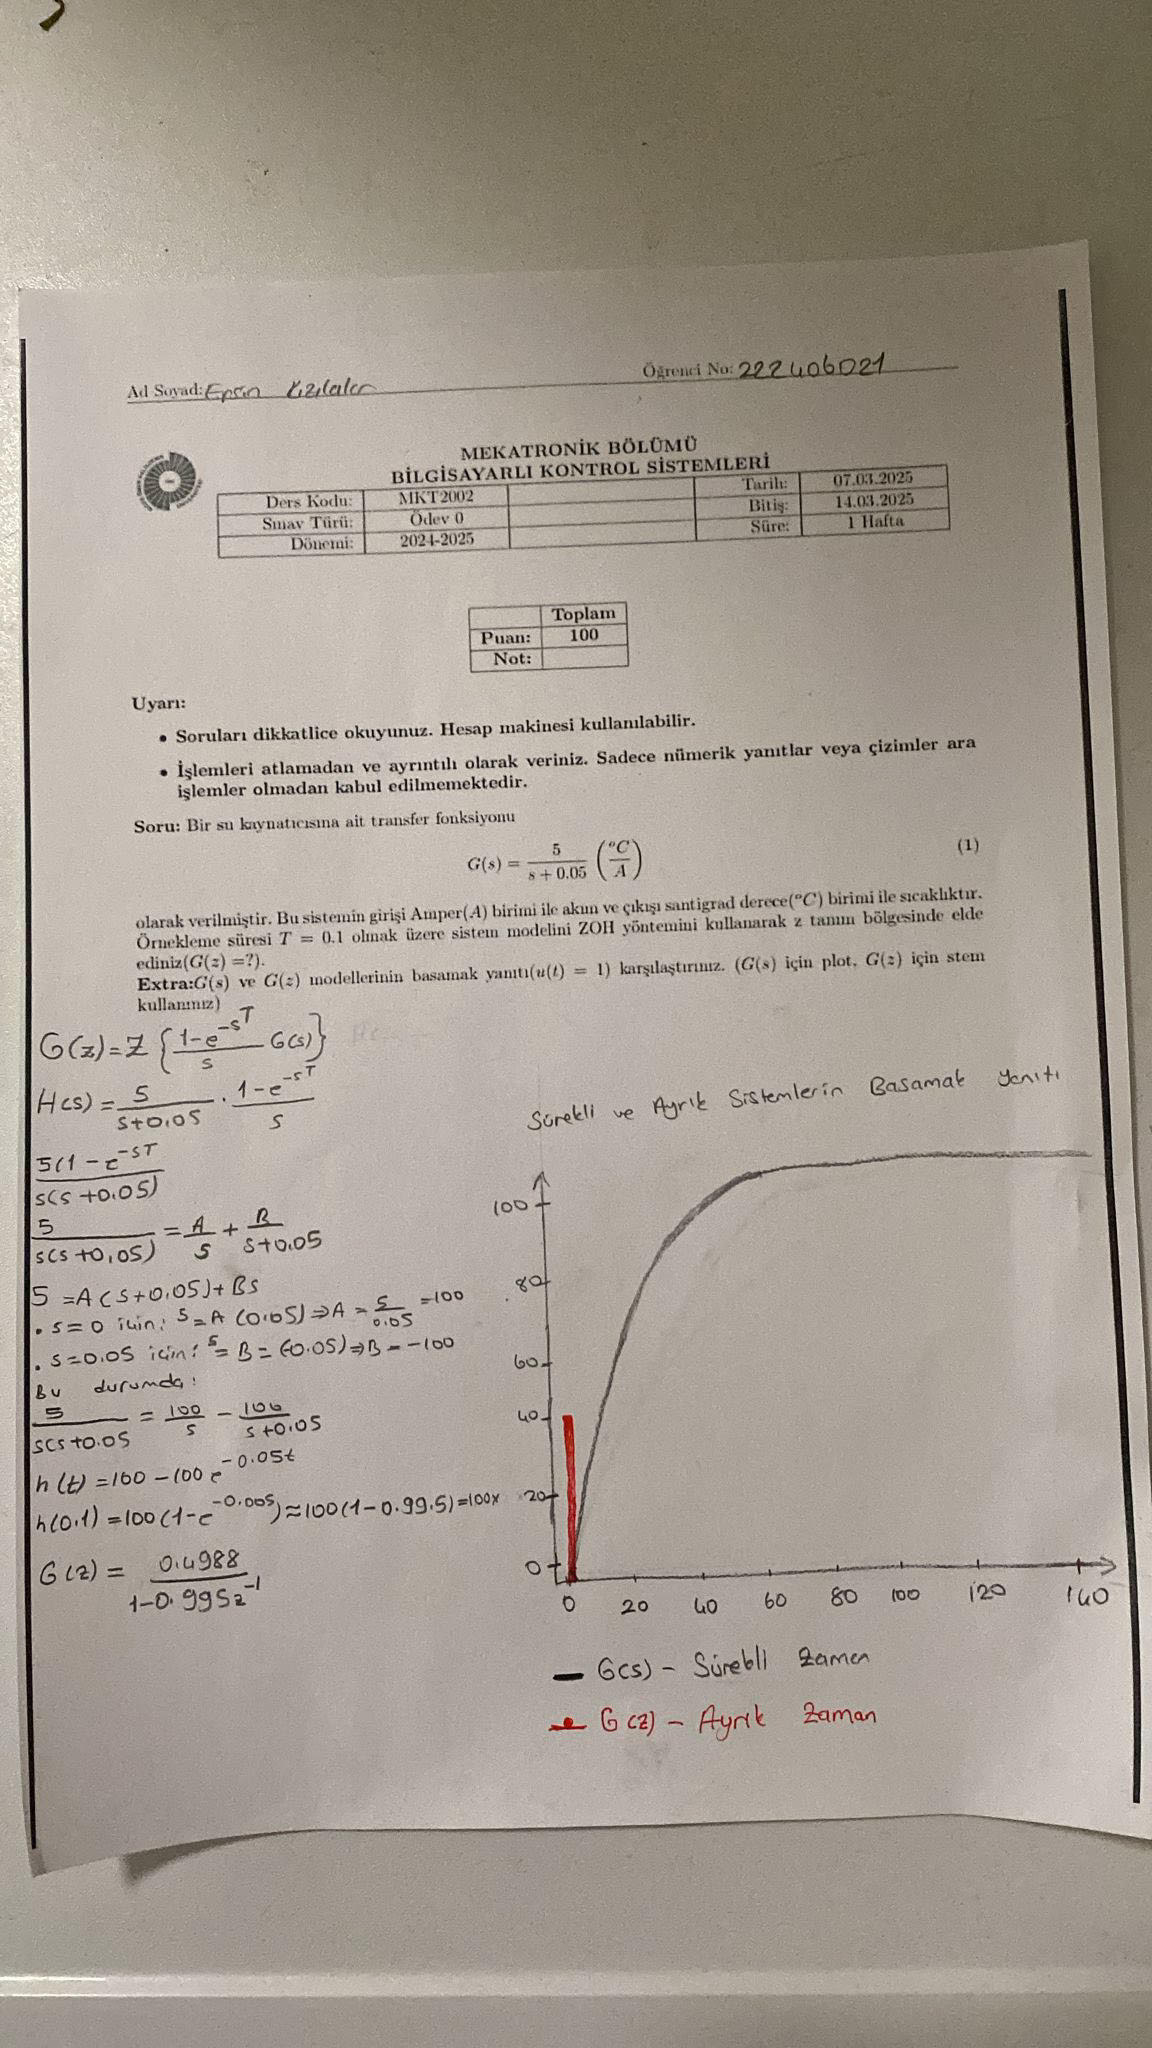 Ad Soyad: Ersin Kızılaler
Öğrenci No: 222406021
MEKATRONİK BÖLÜMÜ
BİLGİSAYARLI KONTROL SİSTEMLERİ
Ders Kodu: MKT2002 Tarih: 07.03.2025
Sınav Türü: Ödev 0 Bitiş: 14.03.2025
Dönemi: 2024-2025 Süre: 1 Hafta
Toplam
Puan: 100
Not:
Uyarı:
• Soruları dikkatlice okuyunuz. Hesap makinesi kullanılabilir.
• İşlemleri atlamadan ve ayrıntılı olarak veriniz. Sadece nümerik yanıtlar veya çizimler ara
işlemler olmadan kabul edilmemektedir.
Soru: Bir su kaynatıcısına ait transfer fonksiyonu
G(s) = 5 / (s + 0.05) (°C / A) (1)
olarak verilmiştir. Bu sistemin girişi Amper(A) birimi ile akım ve çıkışı santigrad derece(°C) birimi ile sıcaklıktır.
Örnekleme süresi T = 0.1 olmak üzere sistem modelini ZOH yöntemini kullanarak z tanım bölgesinde elde
ediniz(G(z) =?).
Extra:G(s) ve G(z) modellerinin basamak yanıtı(u(t) = 1) karşılaştırınız. (G(s) için plot, G(z) için stem
kullanınız)
G(z) = Z { (1-e^-sT / s) G(s) }
H(s) = 5 / (s+0.05) . (1-e^-sT) / s
5(1-e^-sT / s(s+0.05)
5 / s(s+0.05) = A/s + B/(s+0.05)
5 = A(s+0.05)+Bs
. s=0 için: 5=A(0.05)⇒A = 5/0.05 =100
. s=0.05 için: 5 = B = (-0.05)⇒B = -100
Bu durumda:
5 / s(s+0.05 = 100/s - 100/(s+0.05)
h(t) = 100-100e^-0.05t
h(0.1) = 100(1-e^-0.005)≈100(1-0.99.5)=100x
G(z) = 0.4988 / 1-0.995z^-1
Sürekli ve Ayrık Sistemlerin Basamak Yanıtı
100
80
60
40
20
0
0 20 40 60 80 100 120 140
G(s) - Sürekli Zaman
G(z) - Ayrık Zaman